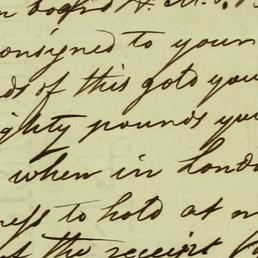 n board H. M. S.
consigned to your
ds of this gold you
ighty pounds you
when in Londo
ness to hold at m
of the receipt